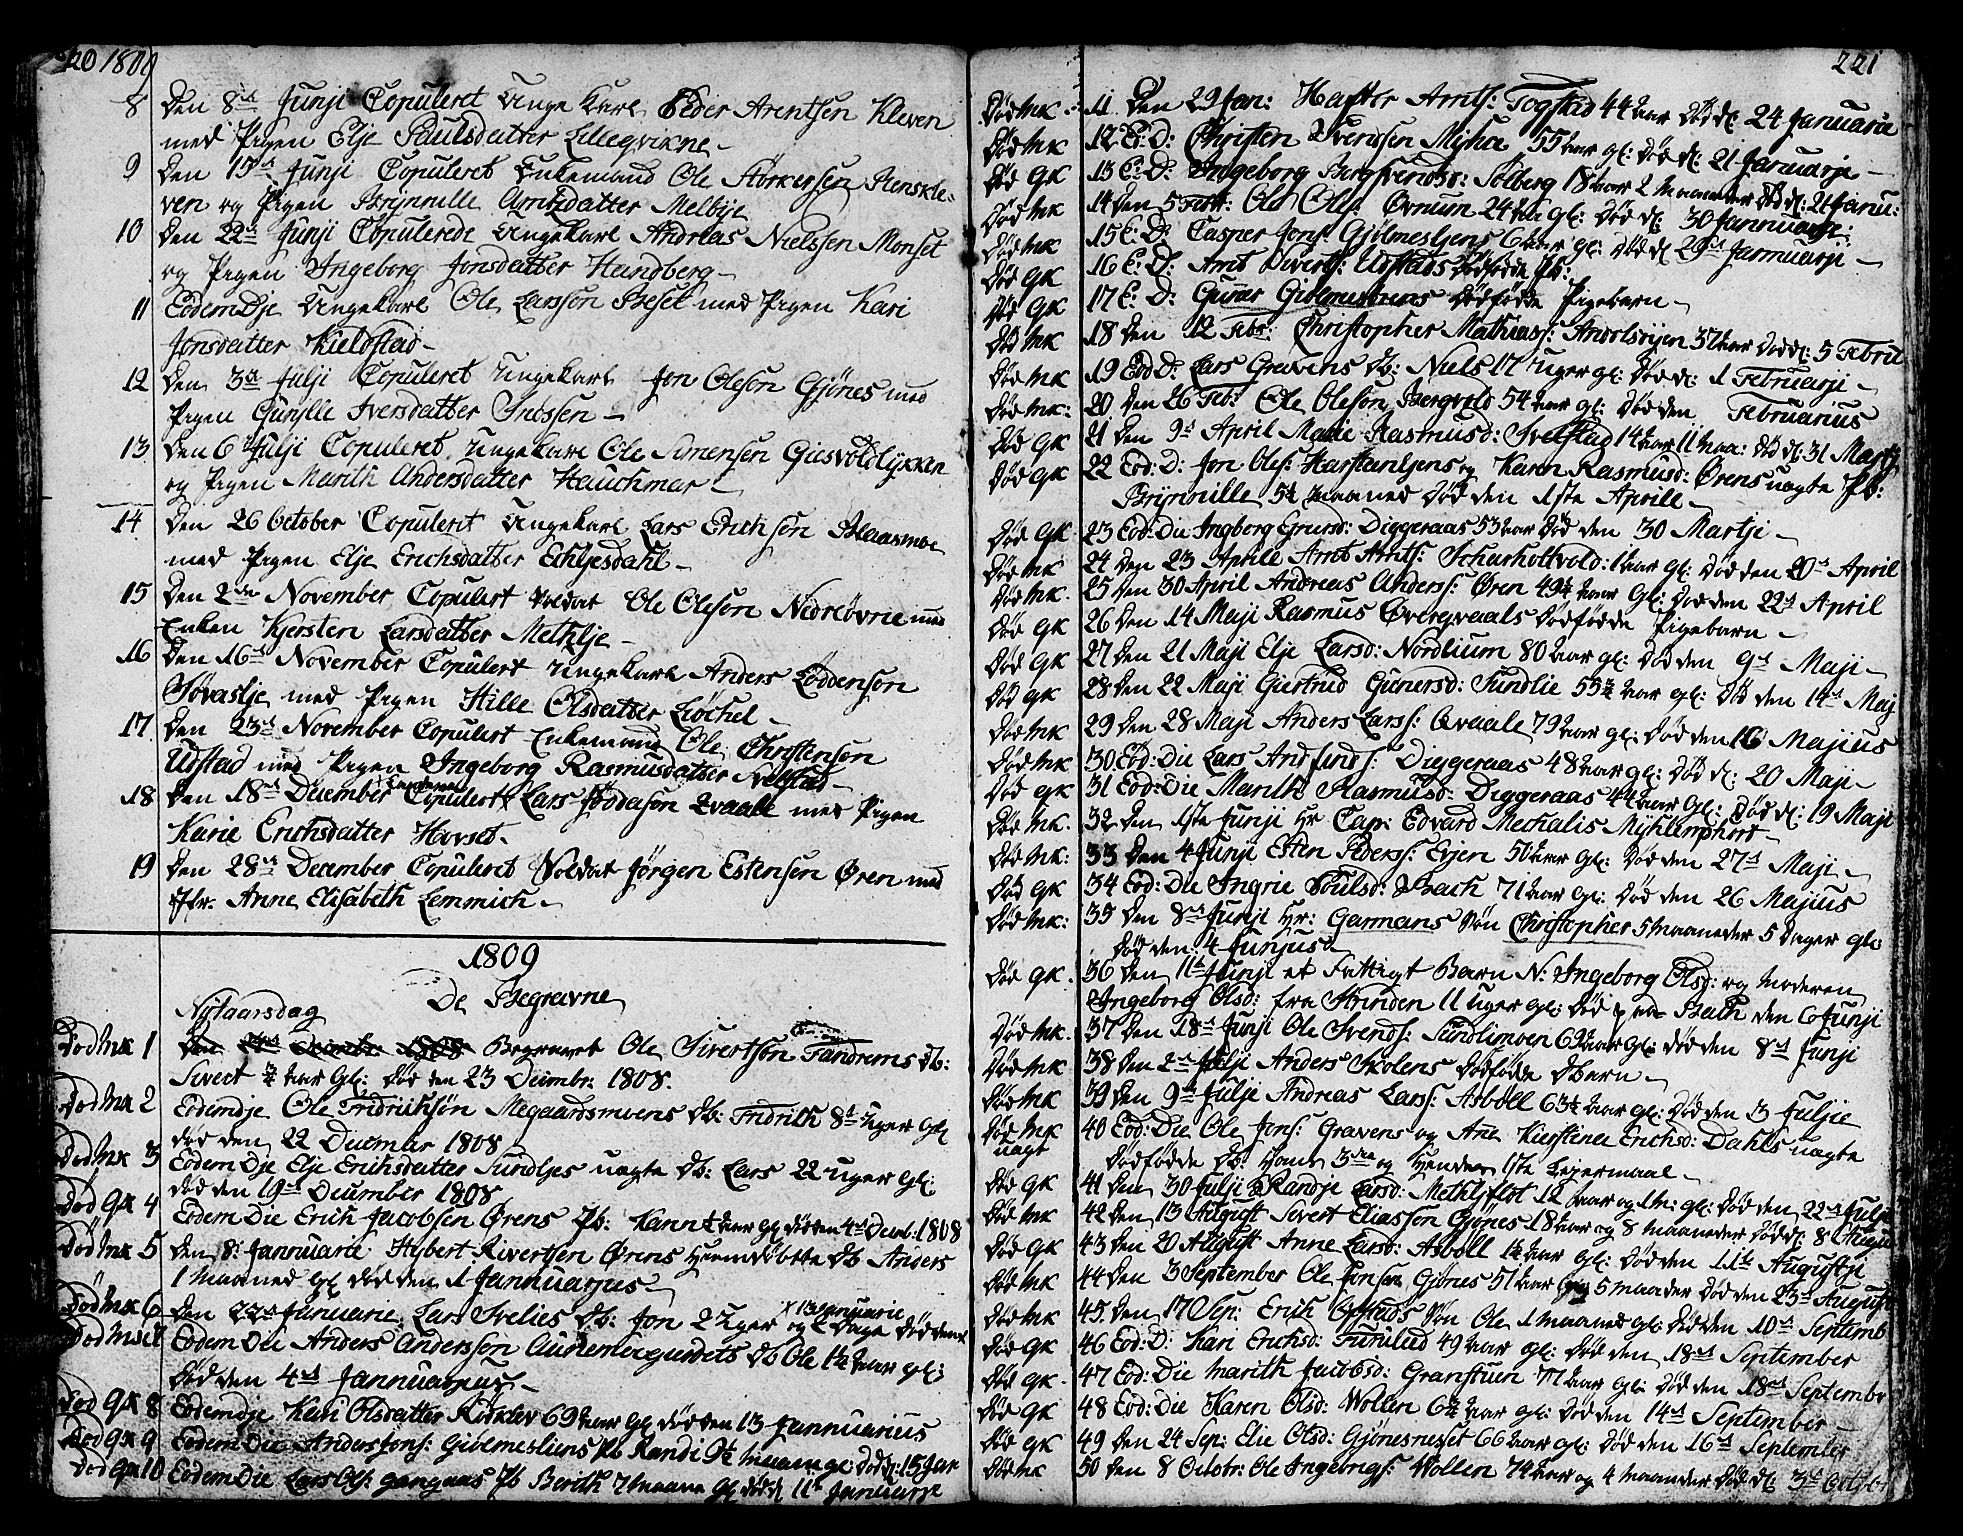 220 1809
8 Den 8de Junji Copuleret Unge Karl Peder Arentsen Kleven
med Pigen Elje Paulsdatter Lillegvikne
9 Den 15de Junji Copuleret Enkemand Ole Størkersen Renskle-
ven og Pigen Brynnille Arntsdatter Melbye
10 Den 22de Junji Copulerede Ungekarl Andreas Nielssen Monset
og Pigen Ingeborg Jonsdatter Handberg
11 Eodem Dje Ungekarl Ole Larsson Besel med Pigen Kari
Jonsdatter Kieldstad
12 Den 3de Julji Copuleret Ungekarl Jon Oleson Gjønes med
Pigen Gunjlle Iversdatter
13 Den 6te Julji Copuleret Ungekarl Ole Simensøn Giesvoldlykken
og Pigen Marith Andersdatter Hauchmar
14 Den 26 October Copulerit Ungekarl Lars Erichsen Blaasmoe
med Pigen Elje Erichsdatter Echljesdahl
15 Den 2den November Copulert Soldat Ole Oleson Nedreøvrie med
Enken Kjersten Larsdatter Methlje
16 Den 16de November Copulert Ungekarl Anders Loddensøn
Søvaslje med Pigen Hille Olsdatter Løchel
17 Den 23de November Copulert Enkemand Ole Christensøn
Udstad med Pigen Ingeborg Rasmusdatter
18 Den 18de December Copulert Lars Joddesøn Qvaale med Pigen
Karie Erichsdatter Hovset
19 Den 28de December Copuleret Soldat Jørgen Estensen Øren med
Jfr. Anne Elisabeth Lemmich
1809
De Begravne
Nytaarsdag
Død MK 1 Begravet Ole Sivertsøn Tandrems Db:
Sivert ¾ Aar Gl: Død den 23 Decembr: 1808.
Død MK 2 Eodemdje Ole Fridrichsøn Megaardsmoens Db: Fridrich 8te Uger Gl:
død den 22 December 1808
Død MK 3 Eodem Dje Elje Erichsdatter Sundljes uægte Db: Lars 22 Uger Gl:
død den 19de December 1808
Død GK 4 Eodem Die Erich Jacobsen Ørens Pb: Aar gl død den 4de Decmb: 1808
Død MK 5 Den 8: Jannuarie Hybert Sivertsen Ørens Hjemdøbte Db Anders
1 Maaned gl død den 1 Jannuarjus
Død MK 6 Den 22de Januarie Lars Db: Jon 2 Uger og 2 Dage død den x 13 Januarie
Død MK 7 Eodem Die Anders Anderssøn Db Ole 1½ Aar gl:
Død den 4de Jannuarjus
Død GK 8 Eodemdje Kari Olsdatter 69 Aar Gl død den 13 Jannuarius
Død GK 9 Eodem Die Anders Jons: Giølmesliens Pb Randi 9½ Maan gl: død d: 15 Jan
Død GK 10 Eodem Die Lars Ols: Pb Berith 7 Maan Gl død d 11te Januarje
221
Død MK: 11 Den 29 Jan: Arnts: Togstad 44 Aar Død d: 24 Januaria
Død MK 12 E: D: Christen Svendsen Mjsha 55 Aar gl: Død d: 21 Januarje
Død GK 13 E: D: Ingeborg Solberg 18 Aar 2 Maaneder Død d: 21 Janu:
Død MK 14 Den 5 Febr: Ole Oles: Øvnum 24 Aar gl: Død d: 30 Jannuarje:
Død MK 15 E: D: Casper Jons: Gjølmesljens 6 Aar gl: Død d: 29de Jannuarji
Død GK 16 E: D: Arnt Sivertss: Udstads Dødfødde Pb:
Død GK 17 E: D: Gunar Giølmesliens Dødfødde Pigebarn
Død MK 18 Den 12 Febr: Christopher Mathiass: 37 Aar Død d: 5 Febril
Død MK 19 Eod D: Lars Gravens Db: Niels 17 Uger gl: Død d: 1 Februarji
Død MK: 20 Den 26 Feb: Ole Oleson Bergvold 54 Aar gl: Død den Februarius
Død GK 21 Den 9de April Marie Rasmusd: 14 Aar 11 Maa: Død d: 31 Martj
Død GK 22 Eod: D: Jon Oles: og Karen Rasmusd: Ørens uægte Pb:
Brynnille 5½ Maaned Død den 1ste Aprile
Død GK 23 Eod: Die Ingborg Diggeraas 53 Aar Død den 30 Martji
Død MK 24 Den 23 Aprile Arnt Arnts: 1 Aar gl: Død den 20de April
Død MK. 25 Den 30 April Andreas Anderss: Øren 49½ Aar Gl: Død den 22de April
Død GK 26 Den 14 Maji Rasmus Øvreqvaals Dødfødde Pigebarn
Død GK 27 Den 21 Maji Elje Larsd: Nordlium 80 Aar gl: Død den 9de Maji
Død GK 28 Den 22 Maji Giertrud Gunersd: Sundlie 55¾ Aar gl: Død den 14de Maj
Død MK 29 Den 28 Maji Anders Larss: Qvaale 79 Aar gl: Død den 16 Majius
Død MK 30 Eod: Die Lars Diggeraas 48 Aar gl: Død d: 20 Maji
Død GK 31 Eod: Die Marith Rasmusd: Diggeraas 44 Aar gl: Død d: 19 Maji
Død MK. 32 Den 1ste Junji Hr Cap: Edvard Mechalis
Død MK: 33 Den 4 Junji Esten Pederss: Evjen 50 Aar Gl: Død den 27de Maji
Død GK 34 Eod: Die Ingrie Poulsd: Bach 71 Aar Gl: Død den 26 Majius
Død MK: 35 Den 8de Junji Hr: Garmans Søn Christopher 5 Maaneder 5 Dager Gl:
Død den 4 Junjus
Død GK. 36 Den 11te Junji et Fattigt Barn N: Ingeborg Olsd: og Moderen
Ingeborg Olsd: fra Strinden 11 Uger gl: Død paa Bach den 6 Junji
Død MK. 37 Den 18de Junji Ole Svends: Sundlimoen 69 Aar gl: Død den 8de Junji
Død MK 38 Den 2de Julji Anders Skolens Dødfødde Dbarn
Død MK 39 Den 9de Julje Andreas Larss: Asbøll 63½ Aar gl: Død den 3 Juljie
Død MK uægt 40 Eod: Die Ole Jons: Gravens og Ane Kierstine Erichsd: Dahls uægte
Dødfødde Db: Hans 3die og Hendes 1ste Lejermaal
Død GK 41 Den 30 Julji Randje Larsd: Methljflot 12 Aar og gl: Død den 22de Julji
Død MK 42 Den 13 August Sivert Eliassøn Gjønes 18 Aar og 8 Maaneder Død d: 8 August
Død GK 43 Den 20 August Anne Larsd: Asbøll 1½ Aar gl: Død den 11te Augustji
Død MK 44 Den 3 September Ole Jonsen Gjønes 51 Aar og 5 Maander Død den 23de August
Død MK 45. Den 17 Sep: Erich Søn Ole 1 Maaned gl: Død den 10de Septemb
Død GK 46 Eod: D: Kari Erichsd: Furulud 49 Aar gl: Død den 18de September
Død GK 47 Eod: Die Marith Jacobsd: Granstuen 77 Aar gl: Død den 18de Septembr
Død GK 48 Eod: Die Karen Olsd: Wollen 6¾ Aar gl: Død den 14de September
Død GK 49 Den 24 Sep: Elie Olsd: Gjønesnesset 66 Aar gl: Død den 16de September
Død MK 50 Den 8 Octobr: Ole Ingebrigs: Wollen 74 Aar og 4 Maander Død d: 3de Octobr